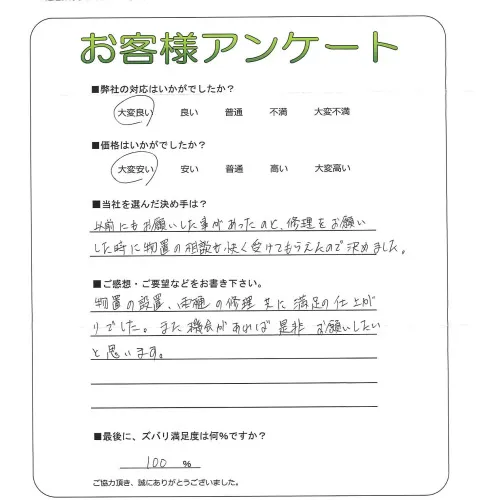 お客様アンケート
■弊社の対応はいかがでしたか?
大変良い 良い 普通 不満 大変不満
■価格はいかがでしたか?
大変安い 安い 普通 高い 大変高い
■当社を選んだ決め手は?
以前にもお願いした事があったのと、修理をお願い
した時に物置の相談も快く受けてもらえたので決めました。
■ご感想・ご要望などをお書き下さい。
物置の設置、雨樋の修理共に満足の仕上が
りでした。また機会があれば是非お願いしたい
と思います。
■最後に、ズバリ満足度は何%ですか?
100 %
ご協力頂き、誠にありがとうございました。